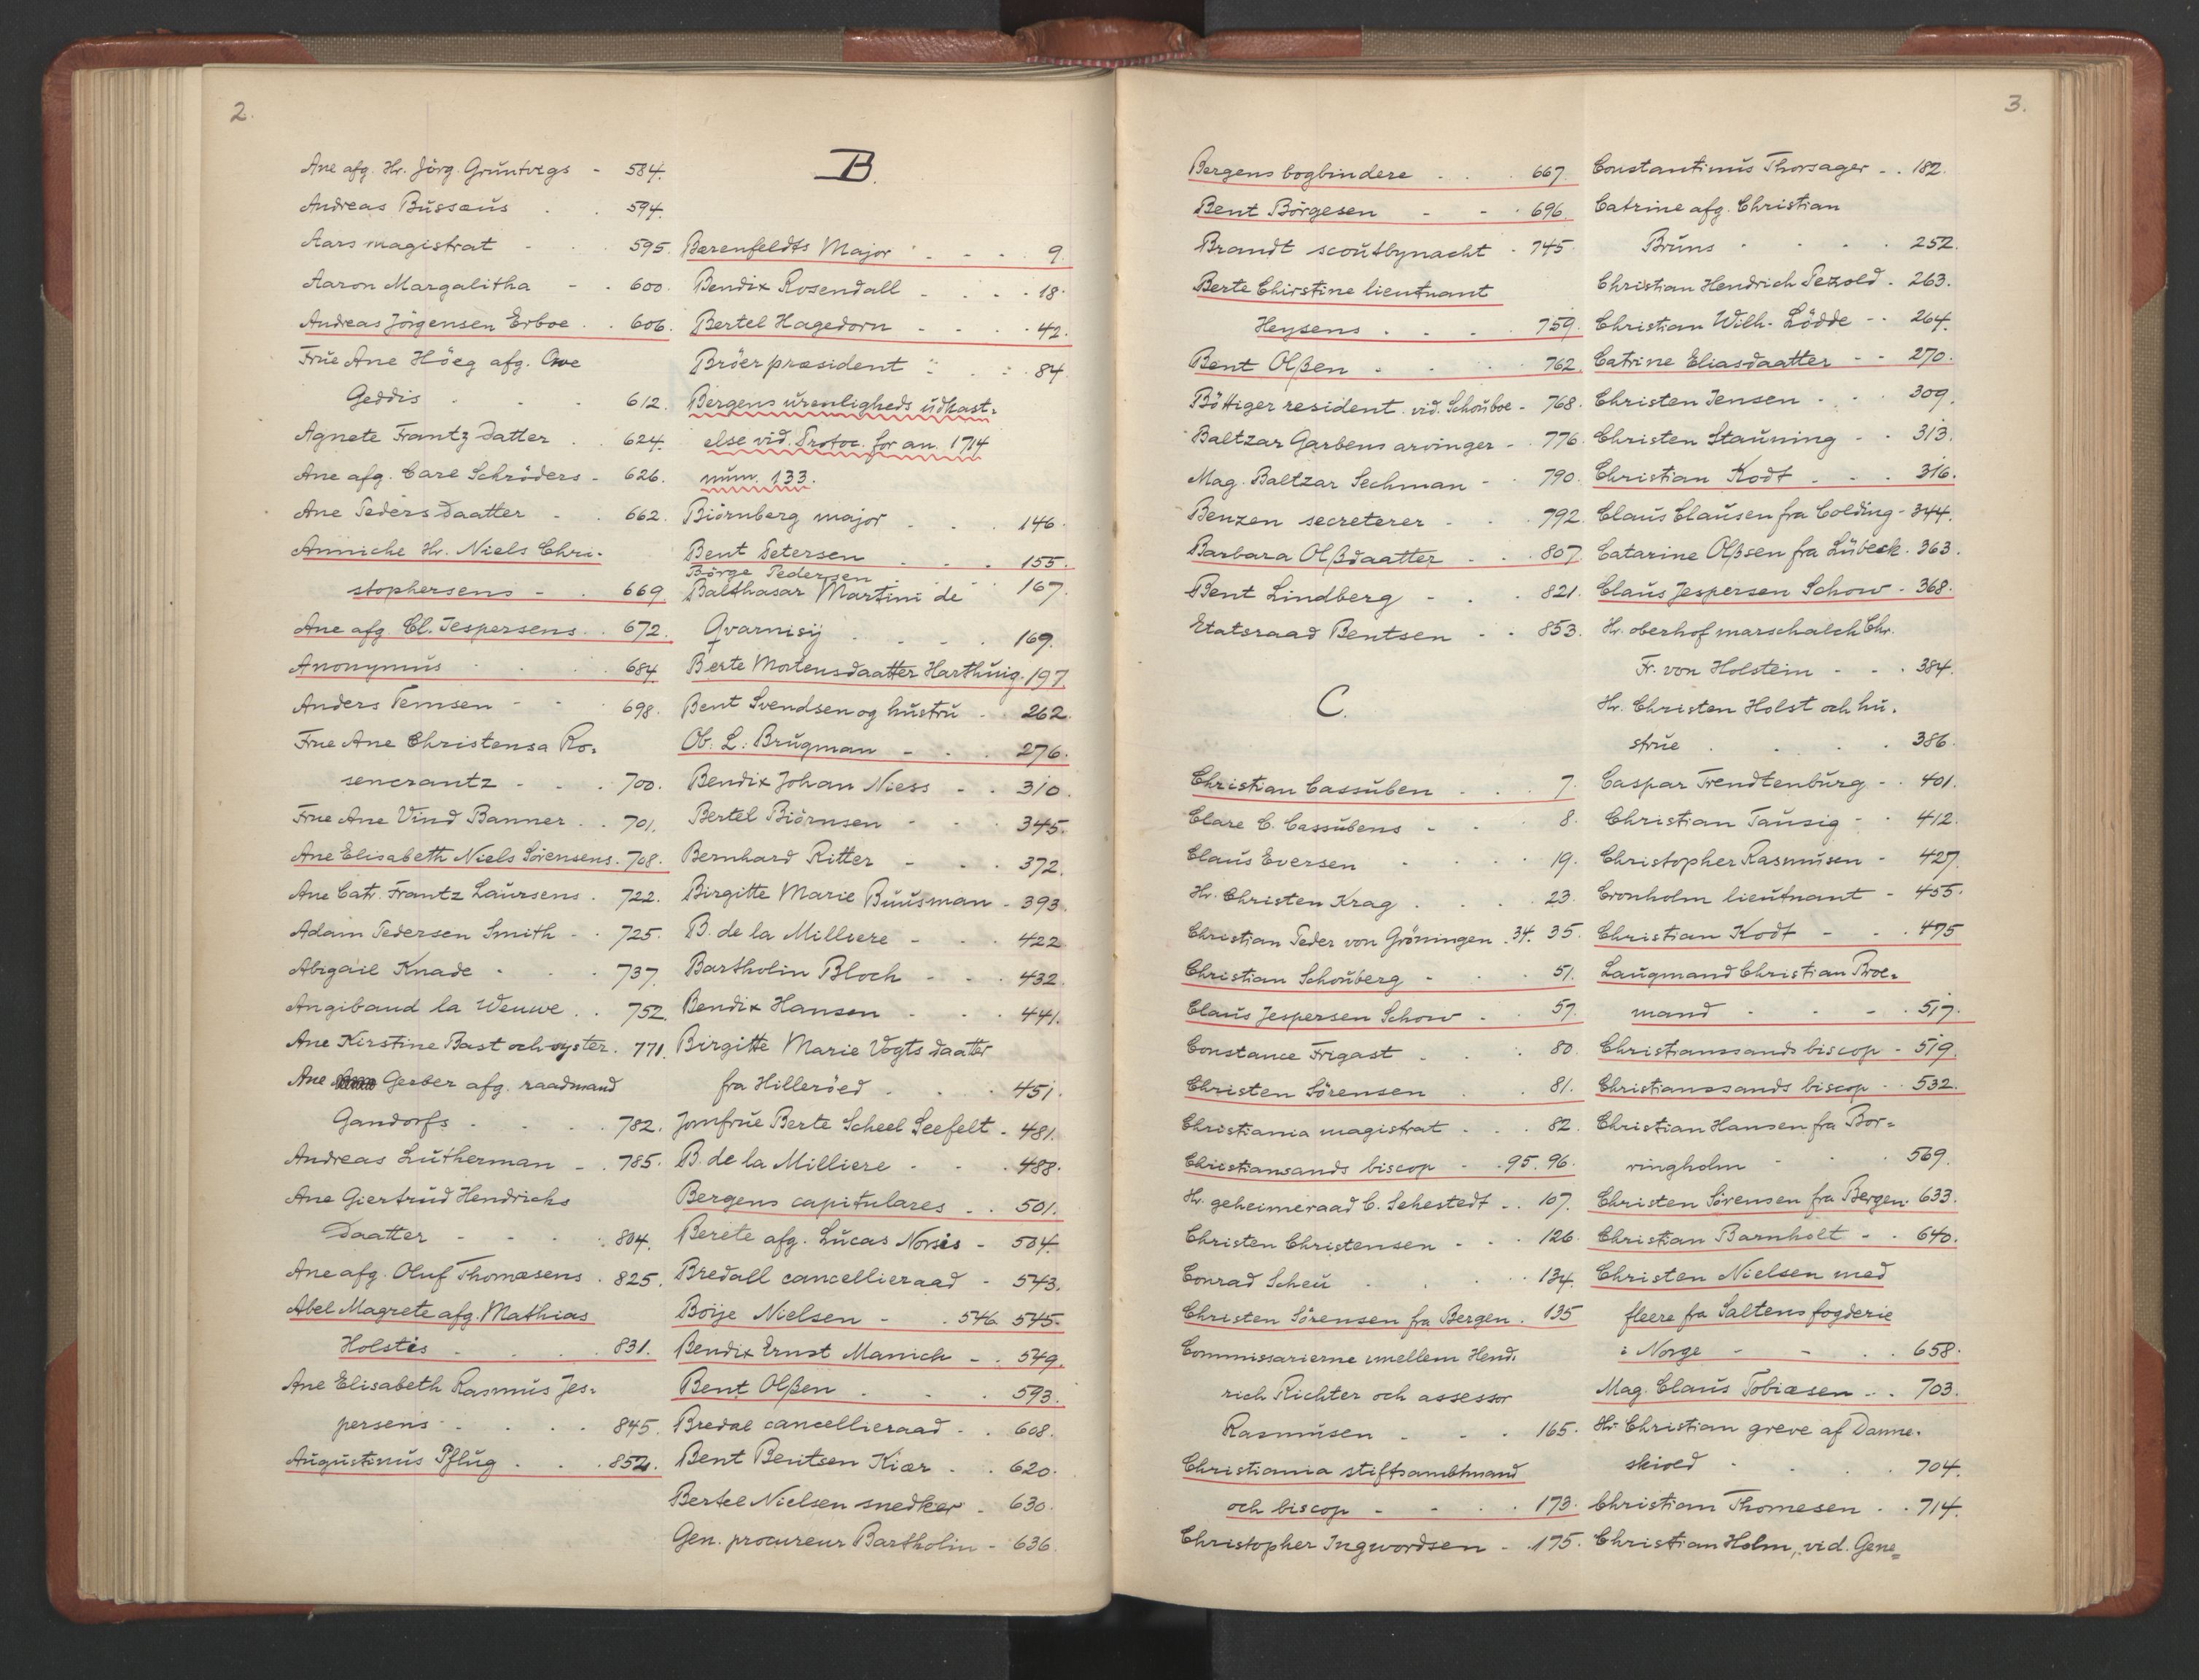 2.
Ane afg. Hr. Jörg. Gruntvigs - 584.
Andreas Bussæus . . 594.
Aars magistrat - . . 595.
Aaron Margalitha - . 600.
Andreas Jörgensen Erboe . . 606.
Frue Ane Höeg afg. Ove
Geddis . . . 612.
Agnete Frantz Datter . . 624.
Ane afg. Carl Schröders - 626.
Ane Peders Daatter - . 662.
Anniche Hr. Niels Chri-
stophersens - . 669.
Ane afg. Cl. Jespersens . . 672.
Anonymus . . . 684.
Anders Temsen - - . 698.
Frue Ane Christensa Ro-
sencrantz - . . 700.
Frue Ane Vind Banner . . 701.
Ane Elisabeth Niels Sörensens . 708.
Ane Catr. Frantz Laursens . 722.
Adam Pedersen Smith - . 725.
Abigail Knade - . . 737.
Angibaud la Weuwe . . 752.
Ane Kirstine Bast och syster . 771.
Ane Gerber afg. raadmand
Gandorfs - . . . 782.
Andreas Lutherman - . 785.
Ane Giertrud Hendrichs
Daatter - - . . 804.
Ane afg. Oluf Thomæsens . 825.
Abel Magrete afg. Mathias
Holstis - . . . 831.
Ane Elisabeth Rasmus Jes-
persens - . . . 845.
Augustinus Pflug . . . 852.
B.
Bærenfeldts Major - . - - . 9.
Bendix Rosendall - . . . 18.
Bertel Hagedorn - - . . 42.
Bröer præsident - . . 84.
Bergens urenligheds udkast-
else vid. Protoc. for an. 1714
num. 133.
Biörnberg major - . . 146.
Bent Petersen . . . 155.
Börge Pedersen . . . 167.
Balthasar Martini de
Qvarnisij . . . . 169.
Berte Mortensdaatter Harthuig . 197.
Bent Svendsen og hustru - . 262.
Ob: L: Brugman - . . 276.
Bendix Johan Niess - . 310.
Bertel Biörnsen - - . 345.
Bernhard Ritter - . . 372.
Birgitte Marie Buusman - 393.
B. de la Milliere - . . 422
Bartholin Bloch - . . 432.
Bendix Hansen - . . 441.
Birgitte Marie Vogts daatter
fra Hilleröed . . . 451.
Jomfrue Berte Scheel Seefelt - 481.
B. de la Milliere - . . 488.
Bergens capitulares . . 501.
Berete afg. Lucas Norsis - 504.
Bredall cancellieraad - 543.
Böije Nielsen - . 546. 545.
Bendix Ernst Manich - . 549.
Bent Olßen . . . 593.
Bredal cancellieraad - . 608.
Bent Bentsen Kiær - . 620.
Bertel Nielsen snedker - 630.
Gen. procureur Bartholin - 636.
3.
Bergens bogbindere . . . 667.
Bent Börgesen - - . 696.
Brandt scoutbynacht . 745.
Berte Chirstine lieutnant
Heysens . . . 759.
Bent Olßen . . . 762.
Böttiger resident. vid. Schouboe - 768.
Baltzar Garbens arvinger - . 776.
Mag. Baltzar Sechman - . 790.
Benzen secreterer - . . 792.
Barbara Olßdaatter - . . 807.
Bent Lindberg - . . 821.
Etatsraad Bentsen - . 853.
C.
Christian Cassuben - . . 7.
Clare C. Cassubens - - . 8.
Claus Eversen - . . . 19.
Hr. Christen Krag . . . 23.
Christian Peder von Gröningen . 34. 35.
Christian Schouberg - . . 51.
Claus Jespersen Schow - . 57.
Constance Frigast . . . 80.
Christen Sörensen . . 81.
Christiania magistrat . . . 82.
Christiansands biscop - . 95. 96.
Hr. geheimeraad C. Sehestedt . . 107.
Christen Christensen - . . 126.
Conrad Scheu . . . 134.
Christen Sörensen fra Bergen . 135
Commissarierne imellem Hend-
rich Richter och assessor
Rasmusen - - . 165.
Christiania stiftsambtmand
och biscop - - . . 173.
Christopher Ingwordsen - . 175.
Constantinus Thorsager - . 182.
Catrine afg. Christian
Bruns . . . . 252.
Christian Hendrich Pezold . 263.
Christian Wilh. Lödde - - 264.
Catrine Eliasdaatter - - 270.
Christen Jensen - . . 309.
Christen Stauning - . 313.
Christian Kodt . - . 316.
Claus Clausen fra Colding - 344.
Catarine Olßsen fra Lübeck . 363.
Claus Jespersen Schow . 368.
Hr. oberhofmarschalch Chr.
Fr. von Holstein - - . 384.
Hr. Christen Holst och hu-
strue . . . . 386.
Caspar Trendtenburg - . 401.
Christian Tausig - . 412.
Christopher Rasmusen - 427.
Cronholm lieutnant - 455.
Christian Kodt - - . 475
Laugmand Christian Broc-
mand - - - . 517.
Christianssands biscop - 519.
Christianssands biscop - . 532.
Christian Hansen fra Bor-
ringholm - . . 569.
Christen Sörensen fra Bergen . 633.
Christian Barnholt - . 640.
Christen Nielsen med
fleere fra Saltens fogderie
i Norge - - . . 658.
Mag. Claus Tobiæsen . . 703.
Hr. Christian greve af Danne-
skiold - . . . 704.
Christian Thomesen . . 714.
Christian Holm, vid. Gene-